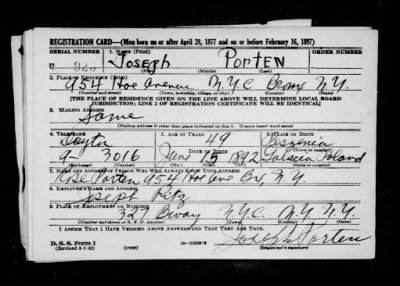 REGISTRATION CARD—(Men born on or after April 28, 1877 and on or before February 16, 1897)
SERIAL NUMBER 1. NAME (Print) ORDER NUMBER
U Joseph Porten
(First) (Middle) (Last)
2. PLACE OF RESIDENCE (Print)
954 Hoe Avenue N.Y.C. Bronx N.Y.
(Number and street) (Town, township, village, or city) (County) (State)
[THE PLACE OF RESIDENCE GIVEN ON THE LINE ABOVE WILL DETERMINE LOCAL BOARD
JURISDICTION; LINE 2 OF REGISTRATION CERTIFICATE WILL BE IDENTICAL]
3. MAILING ADDRESS
Same
[Mailing address if other than place indicated on line 2. If same insert word same]
4. TELEPHONE 5. AGE IN YEARS 6. PLACE OF BIRTH
Dayton 49
9-3016 DATE OF BIRTH June 15 1892 Poland
7. NAME AND ADDRESS OF PERSON WHO WILL ALWAYS KNOW YOUR ADDRESS
Rose Porten 954 Hoe Ave Bx, N.Y.
8. EMPLOYER'S NAME AND ADDRESS
Joseph Ritz
9. PLACE OF EMPLOYMENT OR BUSINESS
327 Bway N.Y.C. N.Y. N.Y.
(Number and street or R. F. D. number) (Town) (County) (State)
I AFFIRM THAT I HAVE VERIFIED ABOVE ANSWERS AND THAT THEY ARE TRUE.
D. S. S. Form 1
(Revised 4-1-42) (over) Joseph Porten
(Registrant's signature)